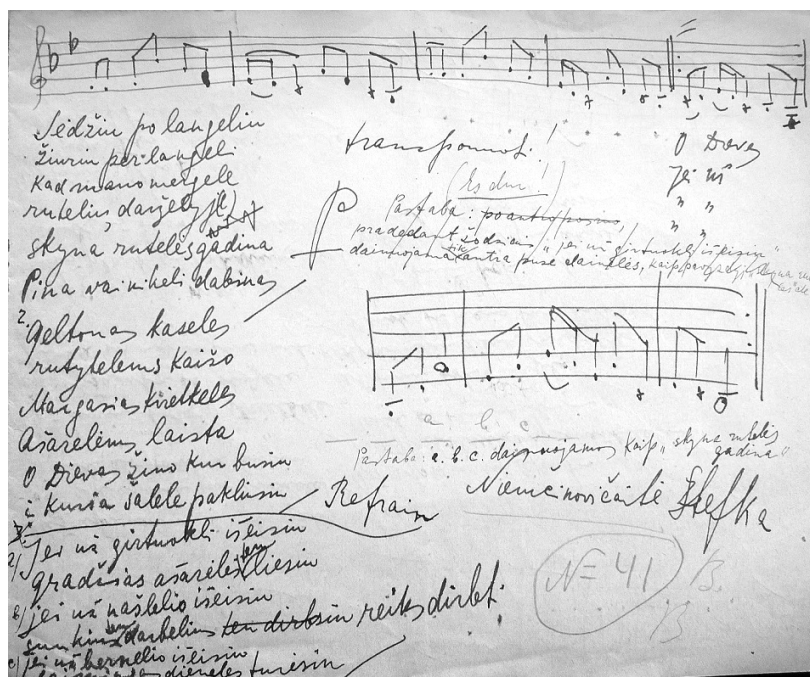 Sėdžiu po langeliu
Žiūriu per langelį
Kad mano mergelė
rutelių daržely
skyna ruteles gadina
Pina vainikelį dabinas
2. Geltonas kaseles
rutytelems kaišo
Margasias
Ašarelėms laista
O Dievas žino kur busiu
kuria šalele pakliusiu
Refrain
Jei už girtuokli išeisiu
gradžias ašareles liesiu
b) jei už našlelio išeisiu
sunkius darbelius ten dirbsiu reiks dirbt.
c) jei už bernelio išeisiu
dieneles turėsiu
transponuoti!
(Es dur!)
O Dievas
Jei už
" "
" "
Pastaba:
pradedant žodžiais „jei už girtuokli išeisiu"
dainuojama antra puse dainelės, kaip
a + b c
Pastaba: a. b. c. dainuojamos kaip „skyna ruteles
gadina"
Niemcinovičaitė Stefka
N=41
B.
B